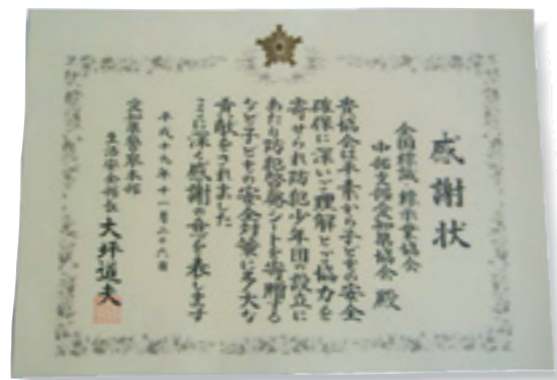 感謝状
全国標識・標示業協会
中部支部愛知県協会 殿
貴協会は平素から子どもの安全
確保に深いご理解とご協力を
寄せられ防犯少年団の設立に
あたり防犯啓発シートを寄贈する
など子どもの安全対策に多大な
貢献をされました
ここに深く感謝の意を表します
平成十九年十一月二十六日
愛知県警察本部
生活安全部長 大坪道夫